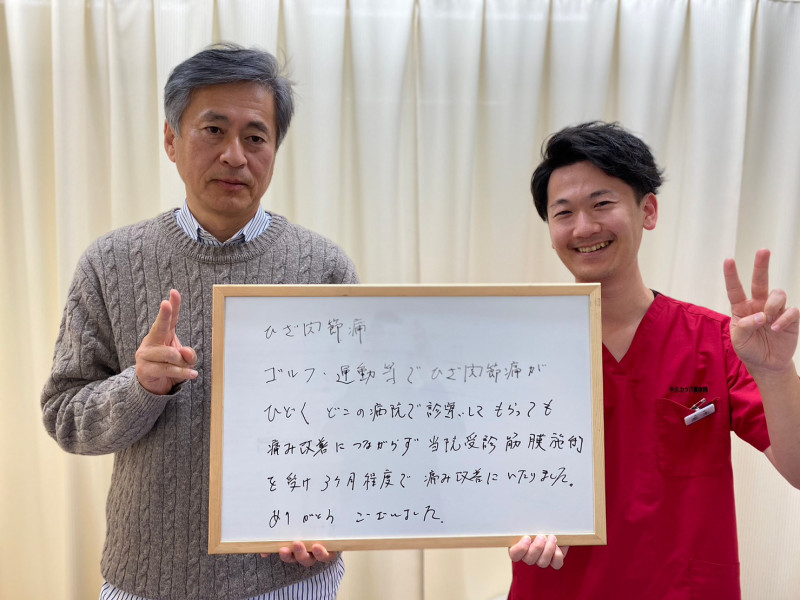 ひざ関節痛
ゴルフ・運動等でひざ関節痛が
ひどく どこの病院で診察してもらっても
痛み改善につながらず 当院受診 筋膜施術
を受け 3ヶ月程度で 痛み改善にいたりました。
ありがとうございました。